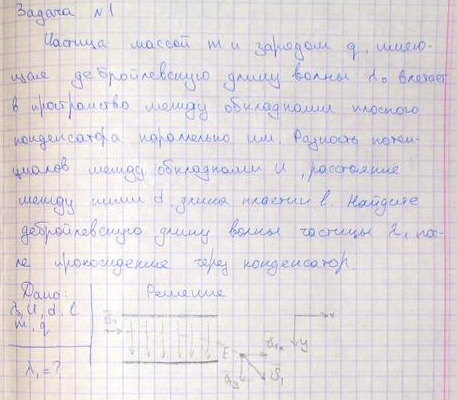 Задача №1
Частица массой m и зарядом q, имею-
щая дебройлевскую длину волны λ₀ влетает
в пространство между обкладками плоского
конденсатора параллельно им. Разность потен-
циалов между обкладками U, расстояние
между ними d, длина пластин l. Найдите
дебройлевскую длину волны частицы λ₁ по-
ле прохождение через конденсатор.
Дано:
λ₀, U, d, l
m, q
λ₁ = ?
Решение
E
x
y